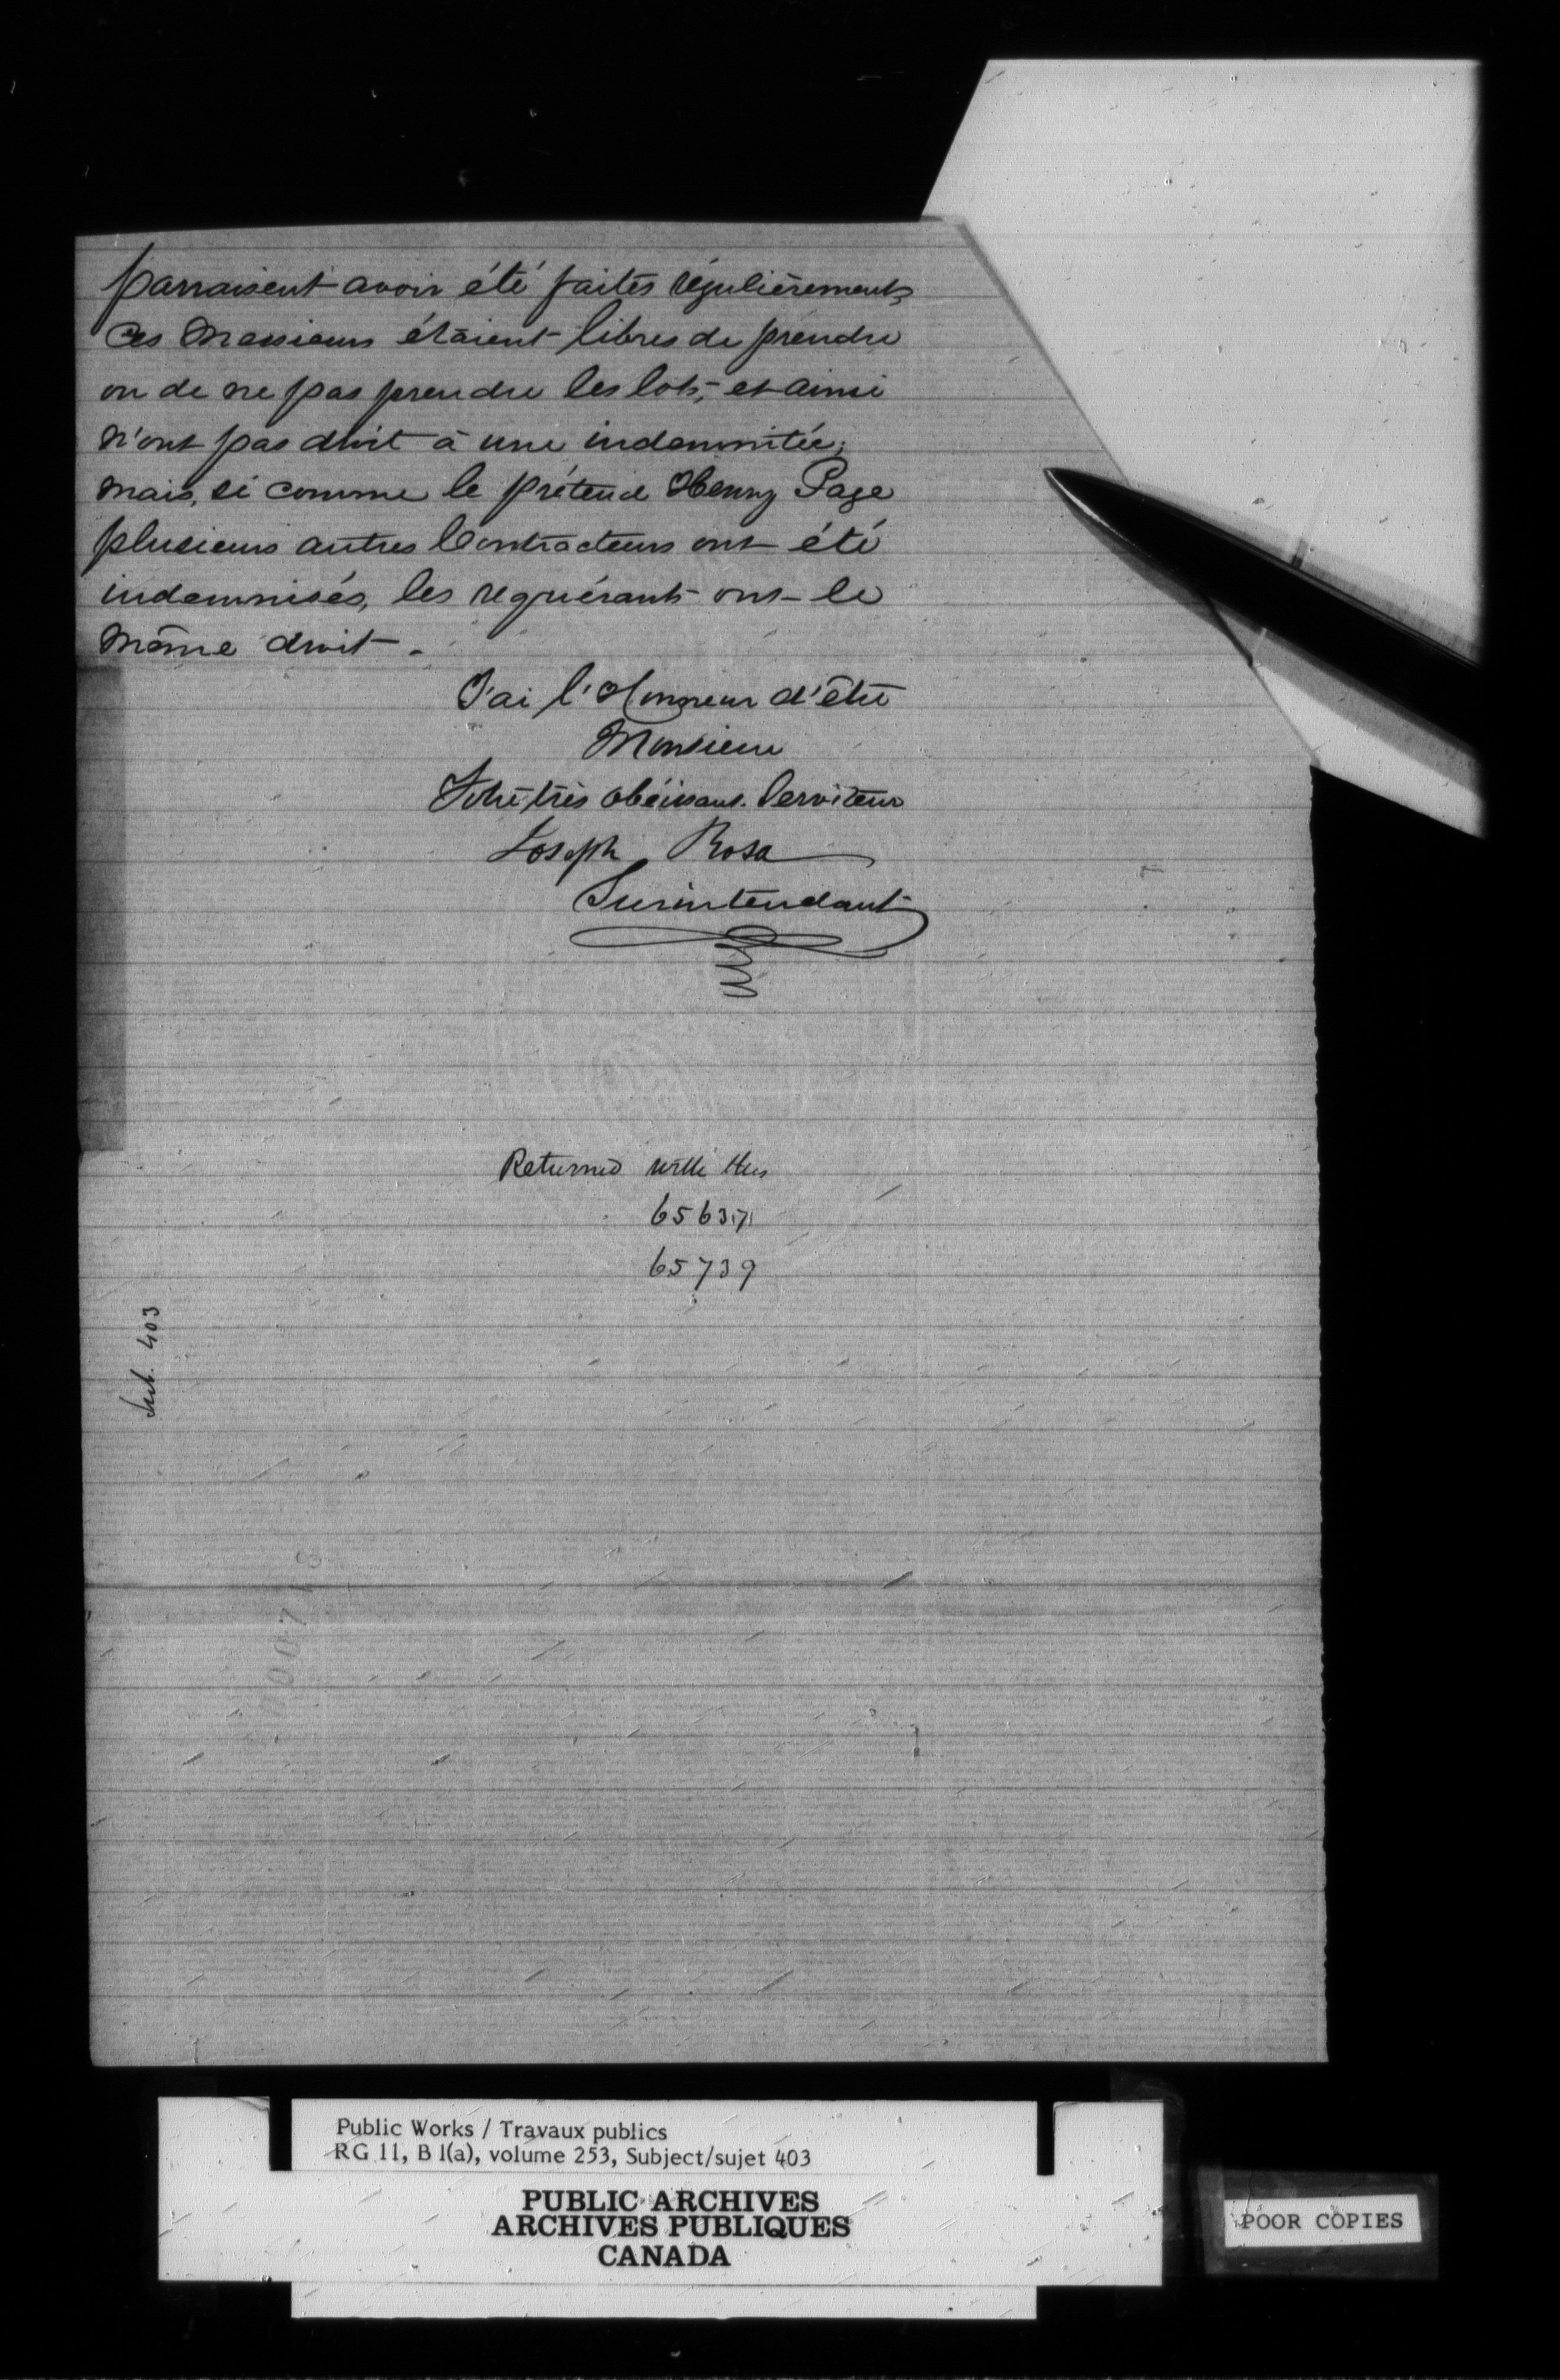 parraisent avoir été faites régulièrement,
Ces Messieurs étaient libres de prendre
ou de ne pas prendre les lots, et ainsi
n'ont pas droit à une indemnitée;
mais, si comme le prétend Henry Page
plusieurs autres Contracteurs ont été
indemnisés, les requérants ont le
même droit.
J'ai l'Honneur d'être
Monsieur
Votre très obéissant Serviteur
Joseph Rosa
Surintendant
Returned with this
65637
65739
Sub. 403
Public Works / Travaux publics
RG 11, B 1(a), volume 253, Subject/sujet 403
PUBLIC ARCHIVES
ARCHIVES PUBLIQUES
CANADA
POOR COPIES